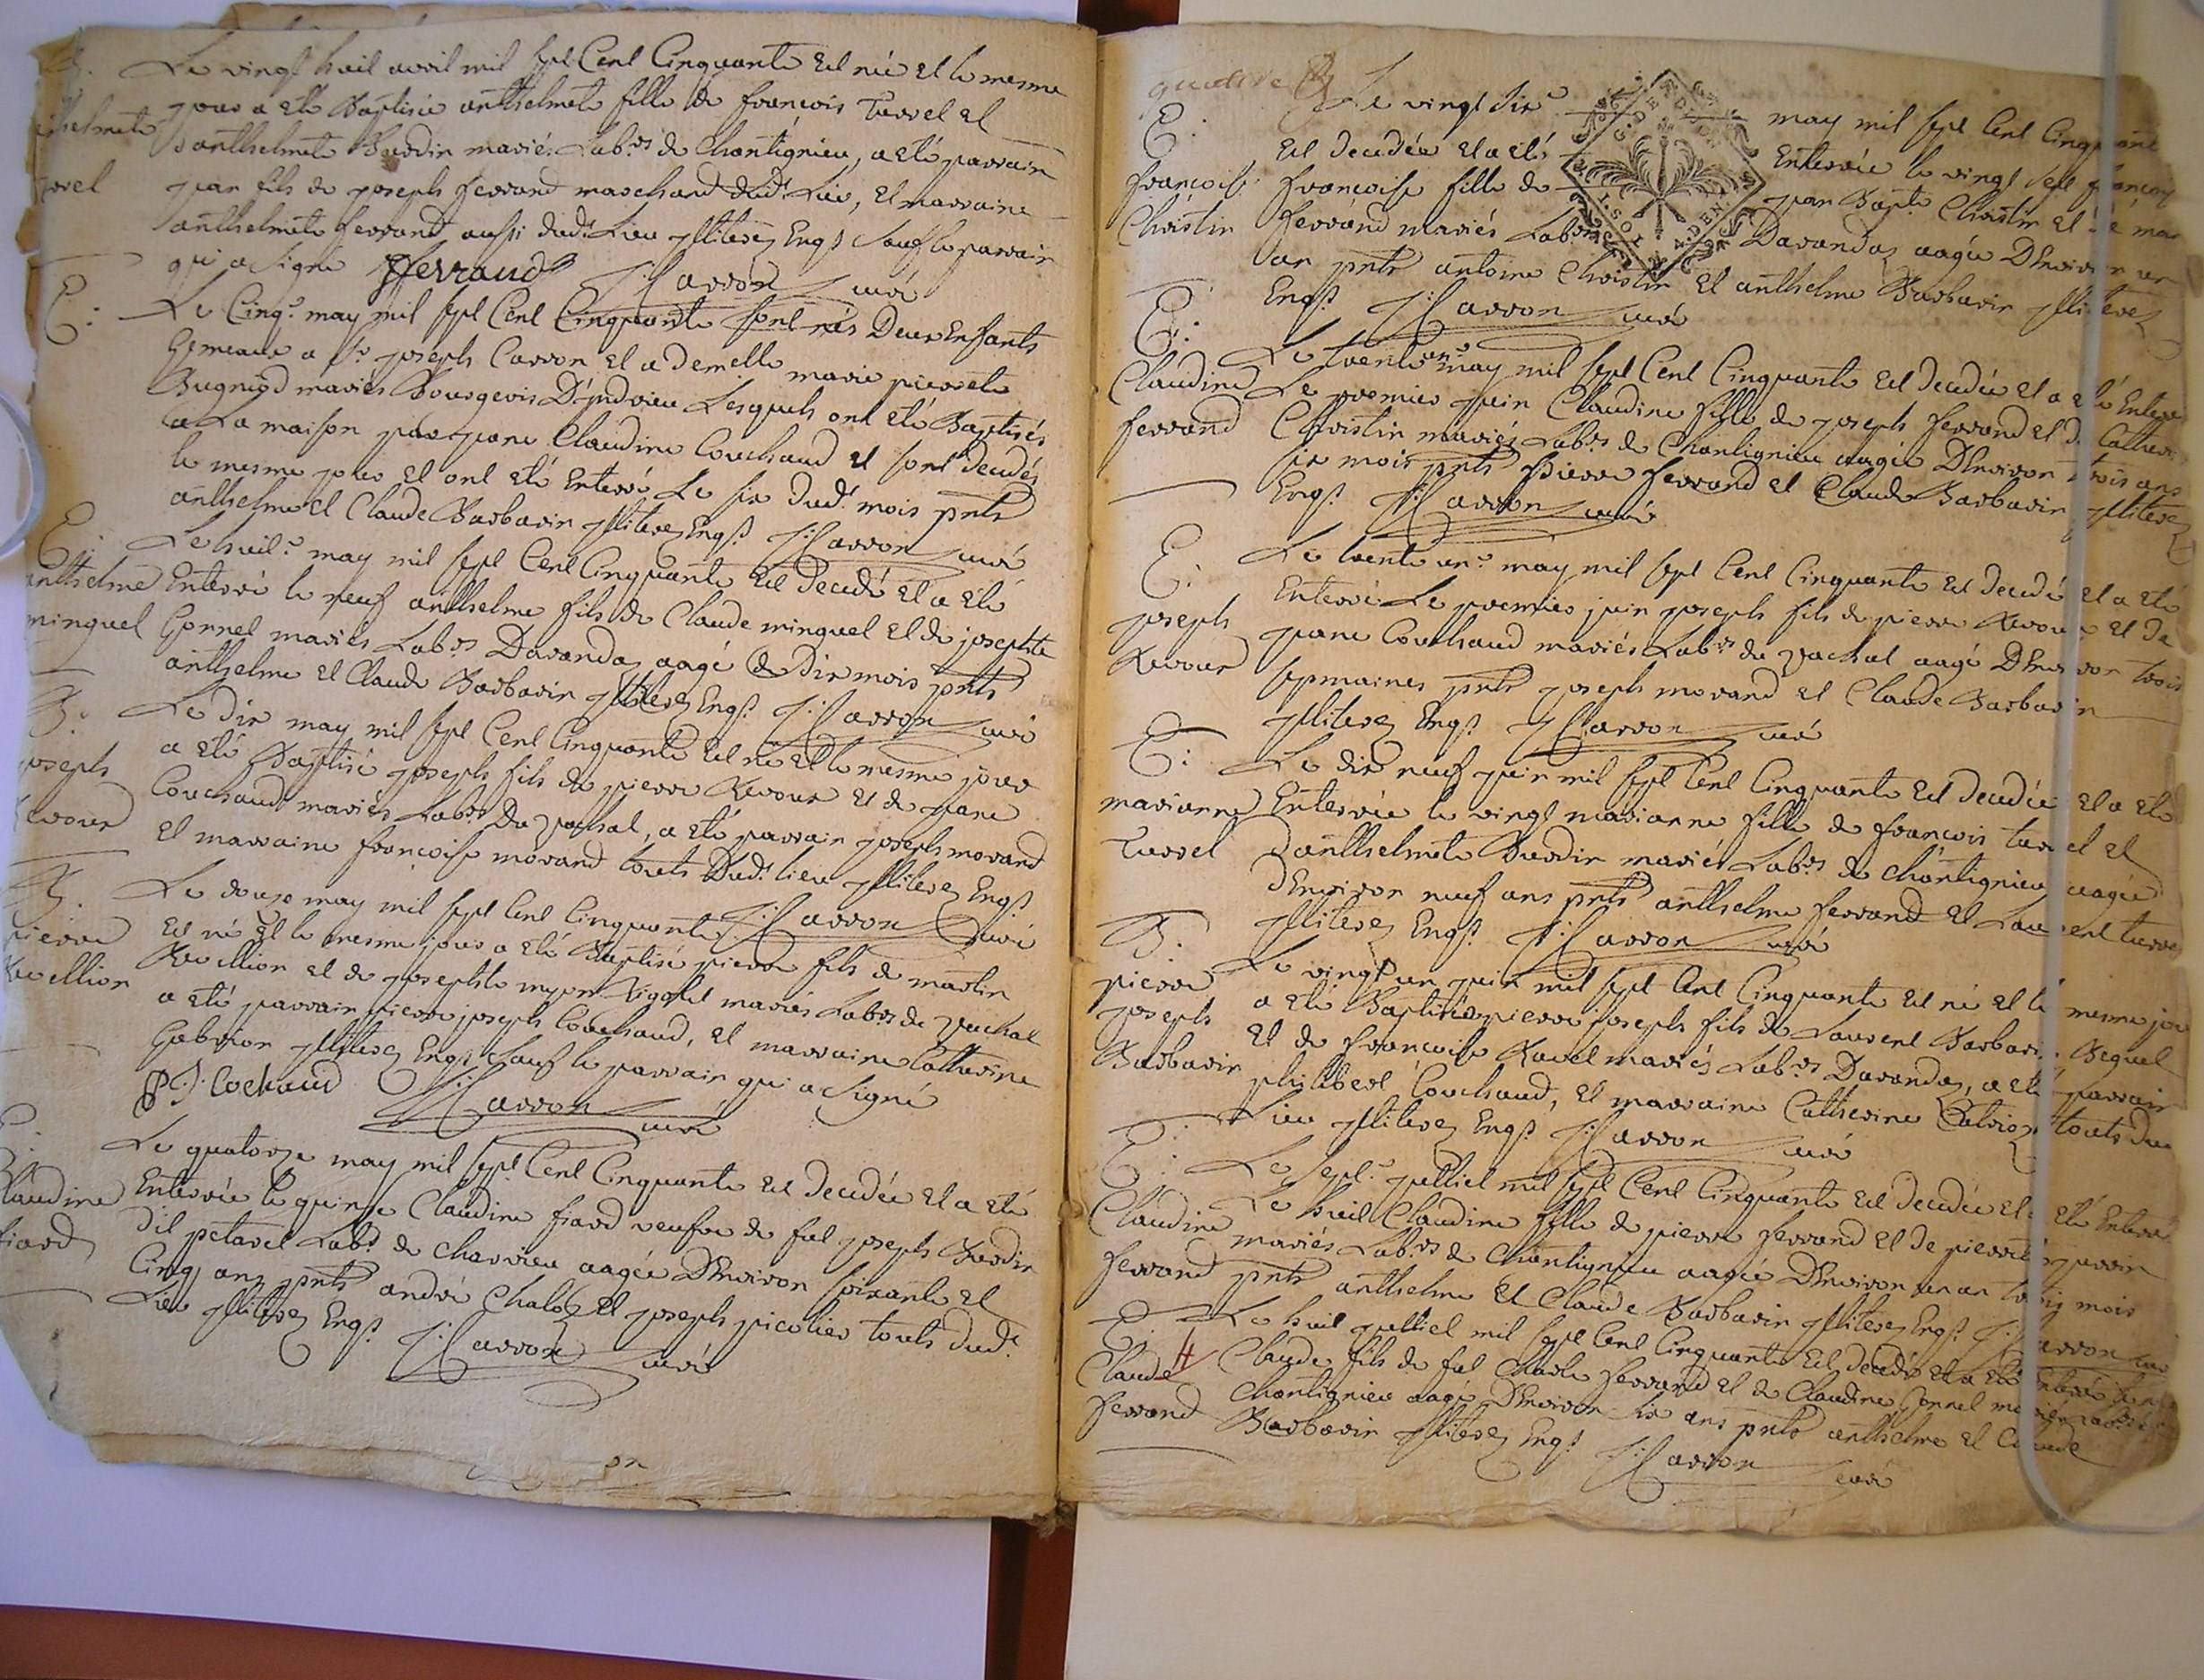 B.
Le vingt huit avril mil sept Cent Cinquante Est née et le mesme
jour a Eté Baptisée anthelmete fille de françois Turrel et
anthelmete
d'anthelmete Burdin mariés Lab.rs de Chantignieu, a Eté parrain
jean fils de joseph ferrand marchand dud.t Lieu, et marraine
anthelmete ferrand aussi dud.t Lieu jlliterez Enq.s Sauf le parrain
qui a Signé Jferrand J: Carron curé
E:
Le Cinq.e may mil sept Cent Cinquante sont nés Deux Enfants
Gemeaux a s.r joseph Carron et a demelle marie pierrete
Bugniod mariés Bourgeois D'yndrieu Lesquels ont Eté Baptisés
a La maison par jeane Claudine Couchoud et sont decedés
le mesme jour et ont Eté Enterré Le six dud.t mois pnts
anthelme et Claude Barbarin jlliterez Enq.s J: Carron curé
E.
anthelme
minguet
Le huit.e may mil sept Cent Cinquante Est Decedé et a Eté
Enterré le neuf anthelme fils de Claude minguet et de josephte
Gonnet mariés Lab.rs Davandaz aagé de Dix mois pnts
anthelme et Claude Barbarin jlliterez Enq.s J: Carron curé
B.
joseph
Revour
Le dix may mil sept Cent Cinquante Est né et le mesme jour
a Eté Baptisé joseph fils de pierre Revour et de jeane
Couchoud mariés Lab.rs du vachat, a Eté parrain joseph morand
et marraine françoise morand touts Dud.t lieu jlliterez Enq.s
J: Carron Curé
B.
pierre
Revellion
Le douze may mil sept Cent Cinquante
Est né et le mesme jour a Eté Baptisé pierre fils de martin
Revellion et de josephte mariés Lab.rs du vachat
a Eté parrain pierre joseph Couchoud, et marraine Catherine
Gabrion jlliterez Enq.s Sauf le parrain qui a Signé
P J: Cochoud J: Carron curé
E:
Claudine
fiard
Le quatorze may mil sept Cent Cinquante Est decedée et a Eté
Enterrée le quinze Claudine fiard veufve de fut joseph Burdin
dit petavel Lab.r de Charrieu aagée D'Environ soixante et
Cinq ans pnts andré Chaley et joseph picolier touts dud.t
Lieu jlliterez Enq.s J: Carron curé
quatre
E:
françoise
Christin
Le vingt six.e may mil sept Cent Cinquante
Est decedée et a Eté Enterrée le vingt sept
françoise fille de jean Bapt.e Christin et de
ferrand mariés Lab.rs Davandaz aagée D'Environ un
an pnts antoine Christin et anthelme Barbarin jlliterez
Enq.s J: Carron curé
E:
Claudine
ferrand
Le trente un.e may mil sept Cent Cinquante Est decedée et a Eté Enterrée
Le premier juin Claudine fille de joseph ferrand et de Catherine
Christin mariés Lab.rs de Chantignieu aagée D'Environ trois ans
six mois pnts pierre ferrand et Claude Barbarin jlliterez
Enq.s J: Carron curé
E:
joseph
Revour
Le trente un.e may mil sept Cent Cinquante Est decedé et a Eté
Enterré Le premier juin joseph fils de pierre Revour et de
jeane Couchoud mariés Lab.rs du vachat aagé D'Environ trois
sepmaines pnts joseph morand et Claude Barbarin
jlliterez Enq.s J: Carron curé
E:
marianne
Turrel
Le dix neuf juin mil sept Cent Cinquante Est decedée et a Eté
Enterrée le vingt marianne fille de françois turrel et
d'anthelmete Burdin mariés Lab.rs de chantignieu aagée
d'Environ neuf ans pnts anthelme ferrand et Laurent turrel
jlliterez Enq.s J: Carron curé
B.
pierre
joseph
Barbarin
Le vingt un juin mil sept Cent Cinquante Est né et le mesme jour
a Eté Baptisé pierre joseph fils de Laurent Barbarin Bequet
et de françoise Ravet mariés Lab.rs Davandaz, a Eté parrain
philibert Couchoud, et marraine Catherine touts du
Lieu jlliterez Enq.s J: Carron curé
E:
Claudine
ferrand
Le sept.e juilliet mil sept Cent Cinquante Est decedée et a Eté Enterrée
Le huit Claudine fille de pierre ferrand et de pierrete
mariés Lab.rs de Chantignieu aagée D'Environ un an mois
pnts anthelme et Claude Barbarin jlliterez Enq.s J: Carron curé
E.
Claude
ferrand
Le huit juilliet mil sept Cent Cinquante Est decedé et a Eté Enterré
Claude fils de fut Charle ferrand et de Claudine Gonnet mariés Lab.rs de
Chantignieu aagé D'Environ six ans pnts anthelme et Claude
Barbarin jlliterez Enq.s J: Carron curé